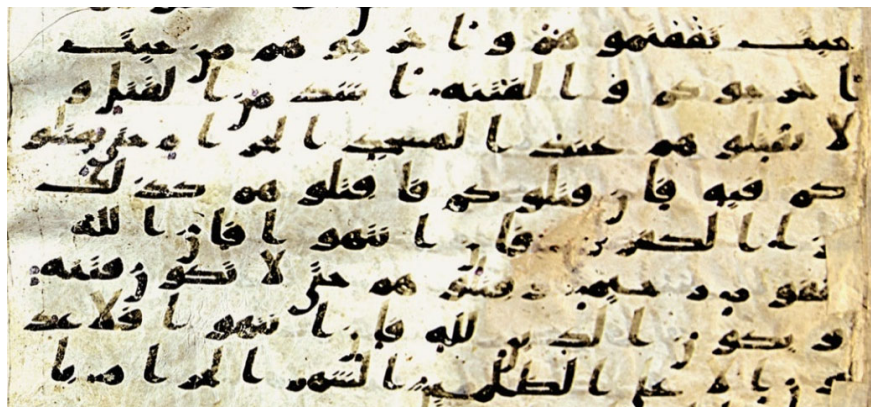 حيث ثقفتموهم واخرجوهم من حيث
اخرجوكم والفتنه اشد من القتل و
لا تقتلوهم عند المسجد الحرام حتى يقتلو
كم فيه فان قتلوكم فاقتلوهم كذلك
جزا الكفرين فان انتهوا فان الله
غفور رحيم وقتلوهم حتى لا تكون فتنه
و يكون الدين لله فان انتهوا فلا عد
ون الا على الظلمين الشهر الحرام با